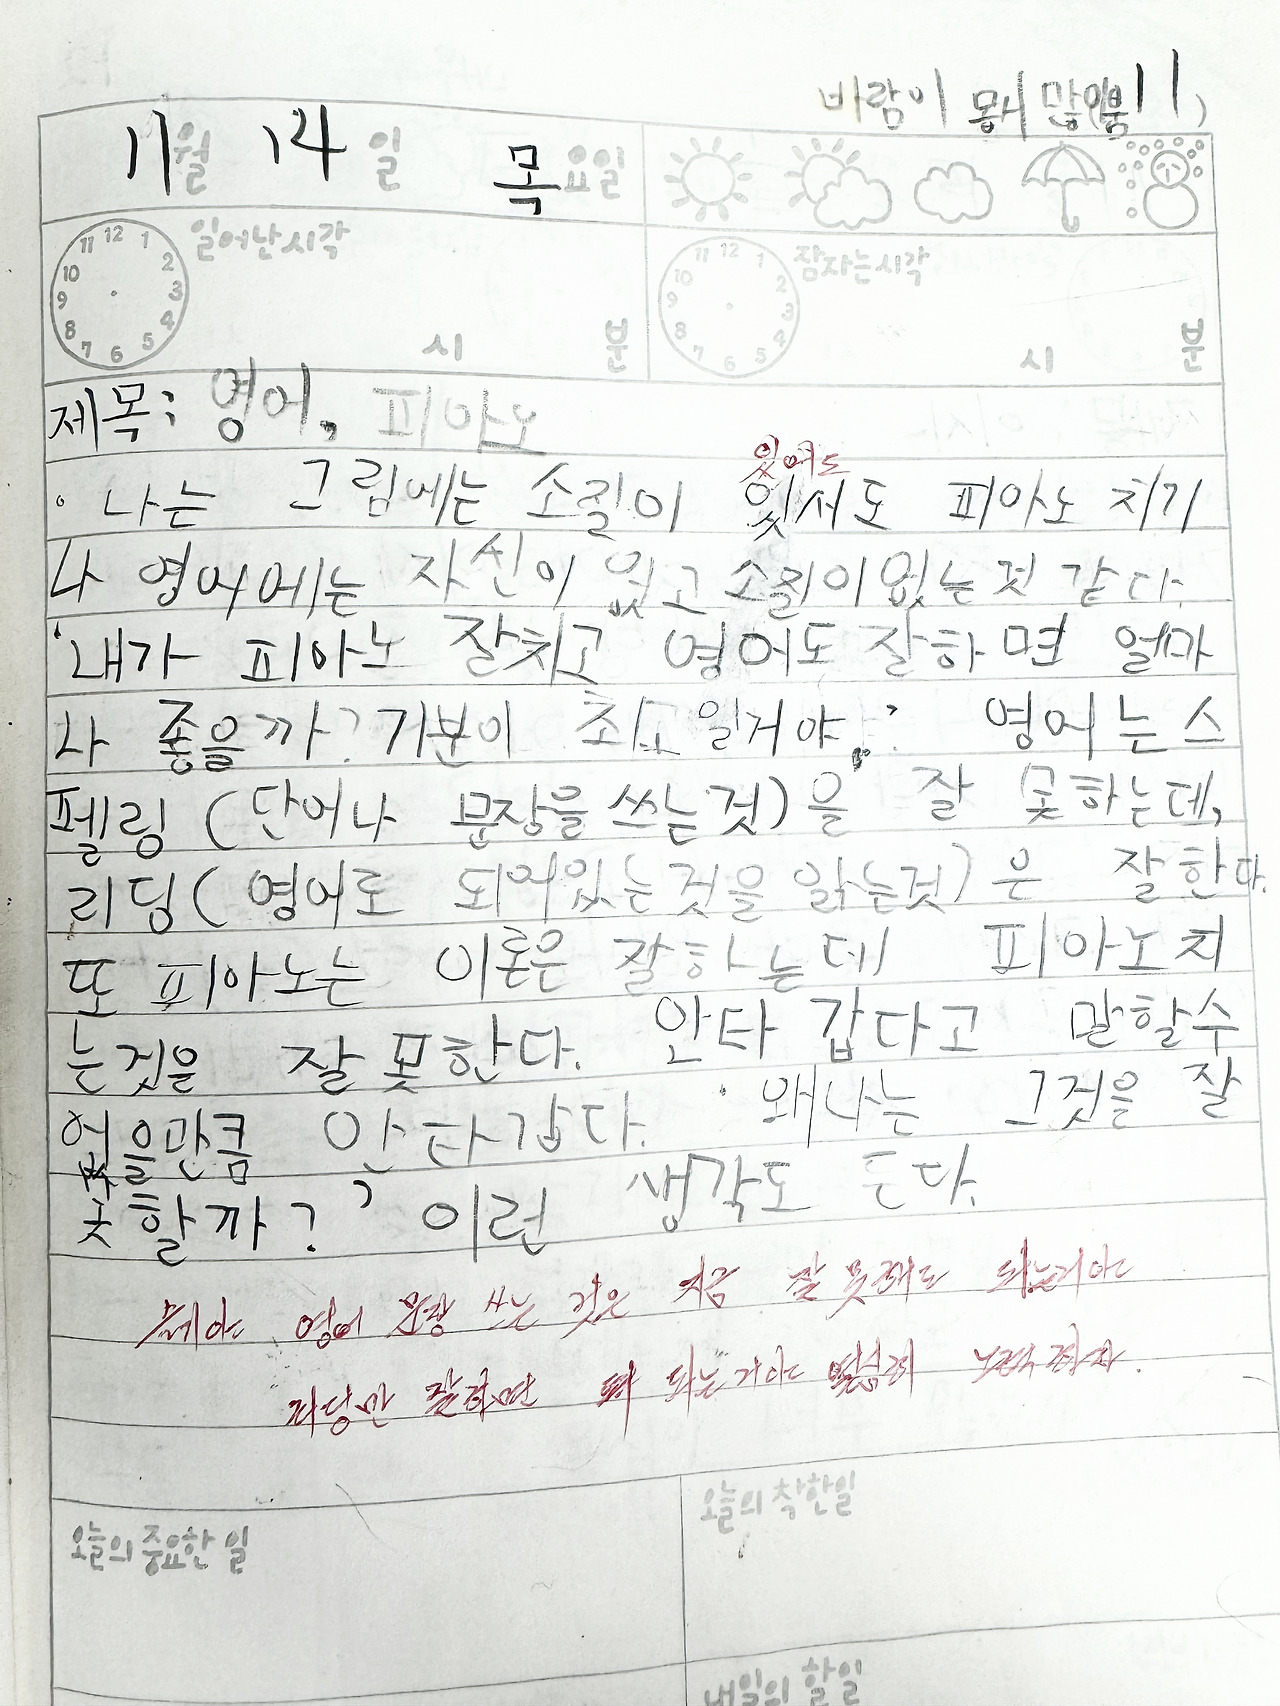 바람이 많이 붐
11월 14일 목요일
일어난시각 11 12 1 2 3 4 5 6 7 8 9 10 시 분
잠자는시각 11 12 1 2 3 4 5 6 7 8 9 10 시 분
제목: 영어, 피아노
있어도
나는 그림에는 소질이 잇서도 피아노 치기
나 영어에는 자신이 없고 소질이없는것 같다.
'내가 피아노 잘치고 영어도 잘하면 얼마
나 좋을까? 기분이 최고일거야.' 영어는스
펠링(단어나 문장을쓰는것)을 잘 못하는데,
리딩(영어로 되어있는것을 읽는것)은 잘한다.
또 피아노는 이론은 잘하는데 피아노치
는것을 잘못한다. 안타 갑다고 말할수
없을만큼 안타갑다. '왜나는 그것을 잘
못할까?' 이런 생각도 든다.
영어 문장 쓰는 것은 지금 잘 못해도 되는거야
잘하면 되는거야 열심히
오늘의 중요한 일
오늘의 착한일
내일의 할일